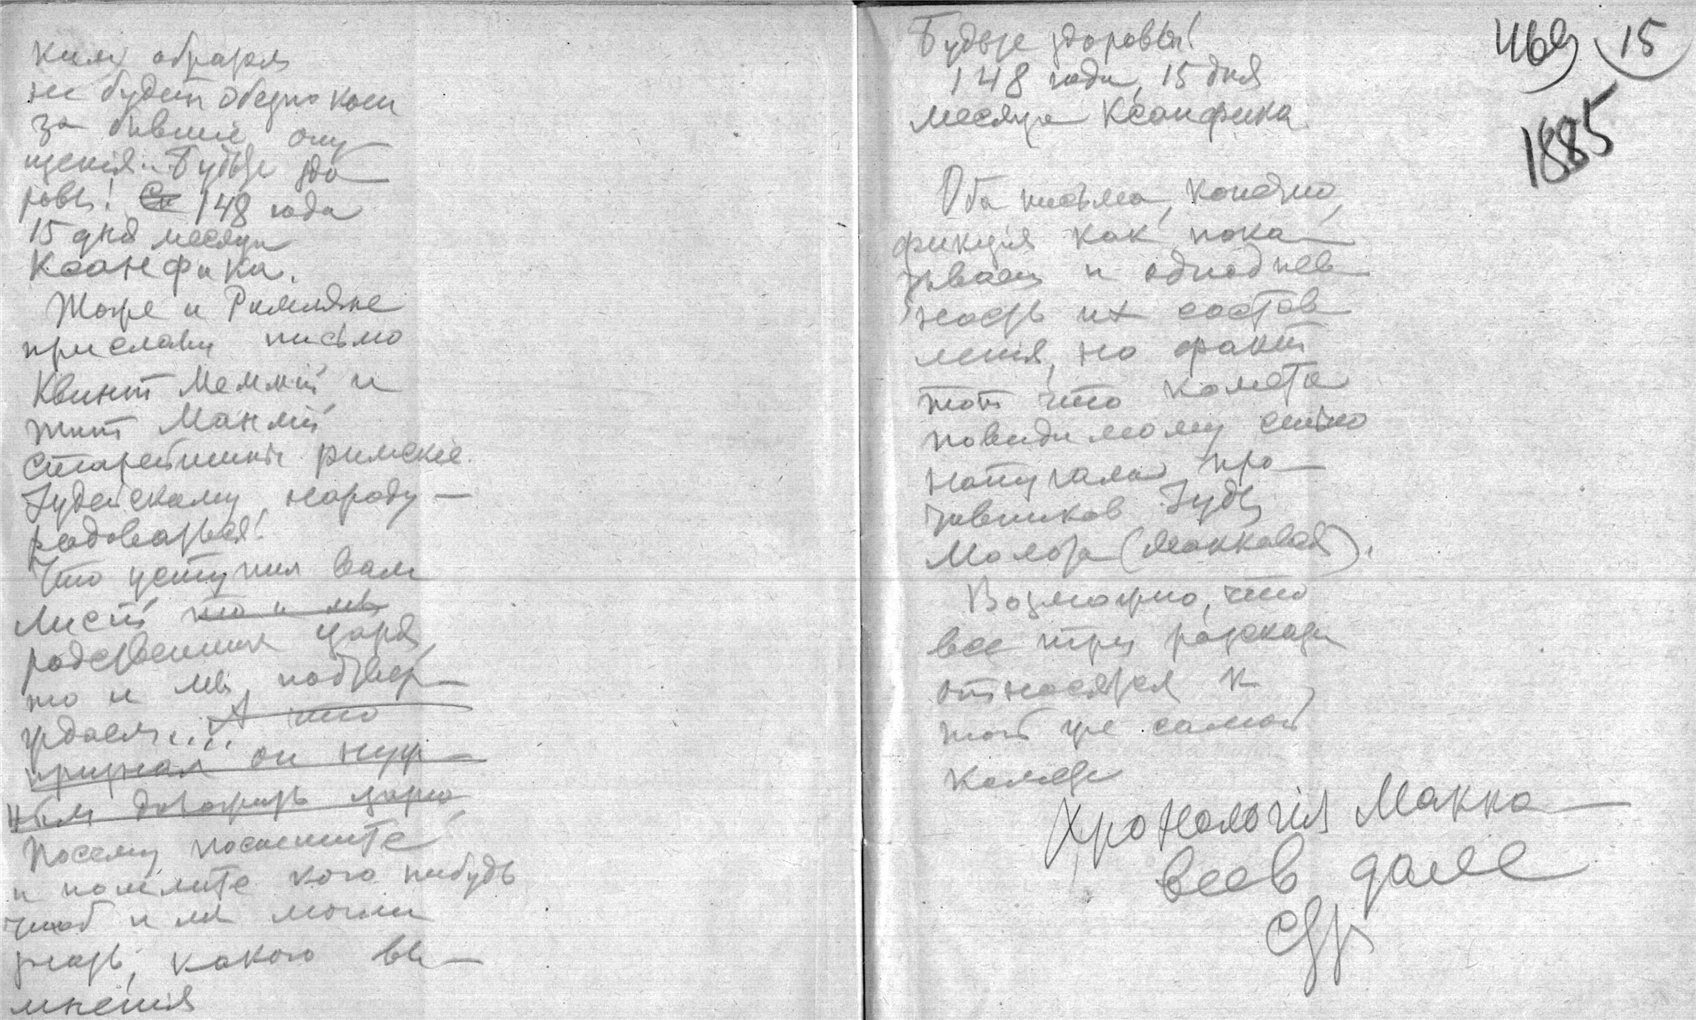 ким образом
не будет обезпокоен
за бывшие опу
щения.. Будьте здо
ровы! 148 года
15 дня месяца
Ксанфика.
Тоже и Римляне
прислали письмо
Квинт Меммий и
Тит Манлий
старейшины римскіе
Іудейскому народу —
радоваться!
Что уступил вам
Лисій то и мы
родственник царя,
то и мы подтвер-
ждаем.... А что
признал он нуж-
ным доложить царю
Посему поспешите
и пошлите кого нибудь
чтоб и мы могли
знать, какого вы —
мнения
Будьте здоровы!
148 года, 15 дня
месяца Ксанфика
469 15
1885
Оба письма, конечно,
фикция как пока —
зывает и одноднев
ность их состав
ления, но факт
тот что комета
повидимому сильно
напугала про —
тивников Іуды
Молота (Маккавея).
Возможно, что
все три разсказа
относятся к
той же самой
комете
Хронологія Макка —
веев далее